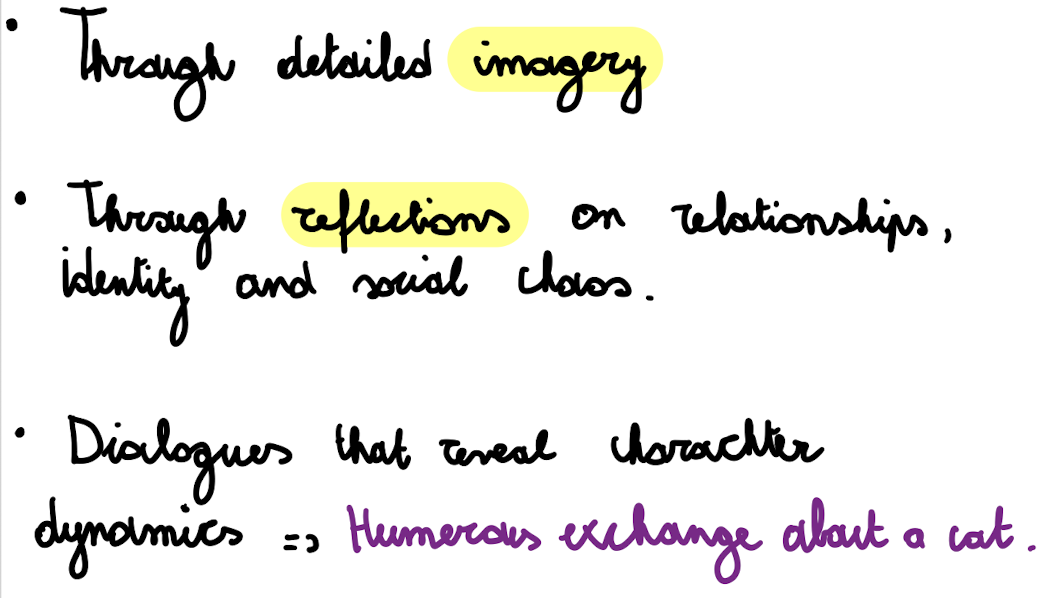 • Through detailed imagery
• Through reflections on relationships,
identity and social chaos.
• Dialogues that reveal charachter
dynamics => Humerous exchange about a cat.